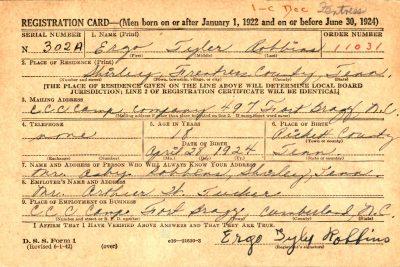 1-C Dec Fentress
REGISTRATION CARD—(Men born on or after January 1, 1922 and on or before June 30, 1924)
SERIAL NUMBER 1. NAME (Print) ORDER NUMBER
N 302A Ergo Tyler Robbins 11031
(First) (Middle) (Last)
2. PLACE OF RESIDENCE (Print)
Shirley, Fentress County, Tenn.
(Number and street) (Town, township, village, or city) (County) (State)
[THE PLACE OF RESIDENCE GIVEN ON THE LINE ABOVE WILL DETERMINE LOCAL BOARD
JURISDICTION; LINE 2 OF REGISTRATION CERTIFICATE WILL BE IDENTICAL]
3. MAILING ADDRESS
C.C.C. Camp, Company 497 Fort Bragg N.C.
(Mailing address if other than place indicated on line 2. If same insert word same)
4. TELEPHONE 5. AGE IN YEARS 6. PLACE OF BIRTH
none 18 Pickett County
DATE OF BIRTH
April 28 1924 Tenn
7. NAME AND ADDRESS OF PERSON WHO WILL ALWAYS KNOW YOUR ADDRESS
Mrs. Robbins, Shirley, Tenn.
8. EMPLOYER'S NAME AND ADDRESS
Mr. Arthur H. Tucker
9. PLACE OF EMPLOYMENT OR BUSINESS
C.C.C. Camp Fort Bragg Cumberland N.C.
(Number and street or R. F. D. number) (Town) (County) (State)
I AFFIRM THAT I HAVE VERIFIED ABOVE ANSWERS AND THAT THEY ARE TRUE.
D. S. S. Form 1
(Revised 6-1-42) (over) Ergo Tyly Robbins
(Registrant's signature)